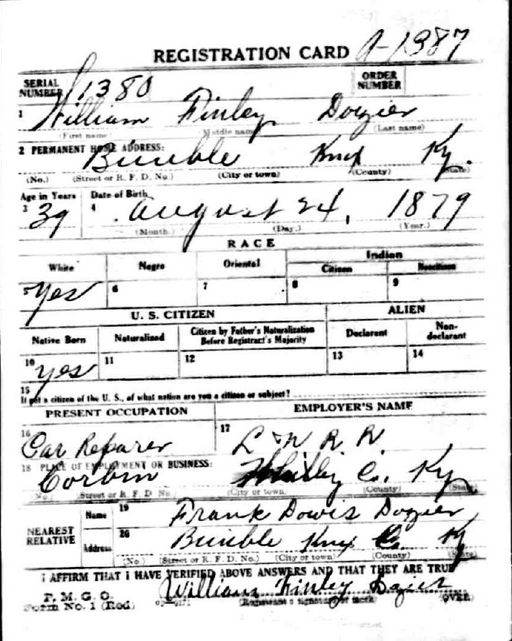 REGISTRATION CARD A-1387
SERIAL NUMBER 1380 ORDER NUMBER
1 William Finley Dozier
(First name) (Middle name) (Last name)
2 PERMANENT HOME ADDRESS:
Bimble Knox Ky.
(No.) (Street or R. F. D. No.) (City or town) (County) (State)
Age in Years Date of Birth
3 39 4 August 24, 1879
(Month.) (Day.) (Year.)
RACE
White Negro Oriental Indian
Citizen Noncitizen
5 Yes 6 7 8 9
U. S. CITIZEN ALIEN
Native Born Naturalized Citizen by Father's Naturalization Before Registrant's Majority Declarant Non-declarant
10 Yes 11 12 13 14
15
If not a citizen of the U. S., of what nation are you a citizen or subject?
PRESENT OCCUPATION EMPLOYER'S NAME
16 Car Reparer 17 L & N R R
18 PLACE OF EMPLOYMENT OR BUSINESS:
Corbin Whitley Co. Ky
(No.) (Street or R. F. D. No.) (City or town) (County) (State)
NEAREST RELATIVE Name 19 Frank Dowis Dozier
Address 20 Bimble Knox Co Ky
(No.) (Street or R. F. D. No.) (City or town) (County) (State)
I AFFIRM THAT I HAVE VERIFIED ABOVE ANSWERS AND THAT THEY ARE TRUE
P. M. G. O.
Form No. 1 (Red) William Finley Dozier
(Registrant's signature or mark) OVER